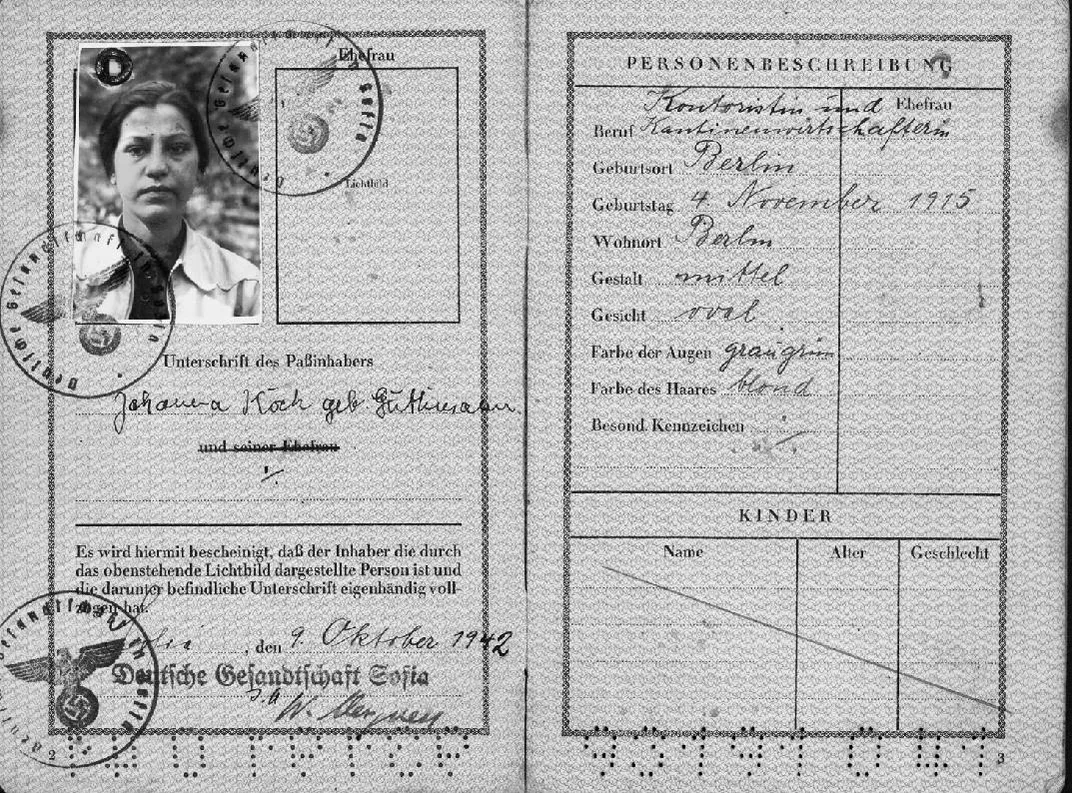 Ehefrau
Lichtbild
Deutsche Gesandtschaft in Sofia
Deutsche Gesandtschaft in Sofia
Unterschrift des Paßinhabers
Johanna Koch geb Guthmann.
und seiner Ehefrau
Es wird hiermit bescheinigt, daß der Inhaber die durch
das obenstehende Lichtbild dargestellte Person ist und
die darunter befindliche Unterschrift eigenhändig voll-
zogen hat.
Sofia, den 9. Oktober 1942
Deutsche Gesandtschaft Sofia
Deutsche Gesandtschaft in Sofia
W.
2
PERSONENBESCHREIBUNG
Ehefrau
Kontoristin und
Beruf Kantinenwirtschafterin
Geburtsort Berlin
Geburtstag 4. November 1915
Wohnort Berlin
Gestalt mittel
Gesicht oval
Farbe der Augen graugrün
Farbe des Haares blond
Besond. Kennzeichen
KINDER
Name Alter Geschlecht
3